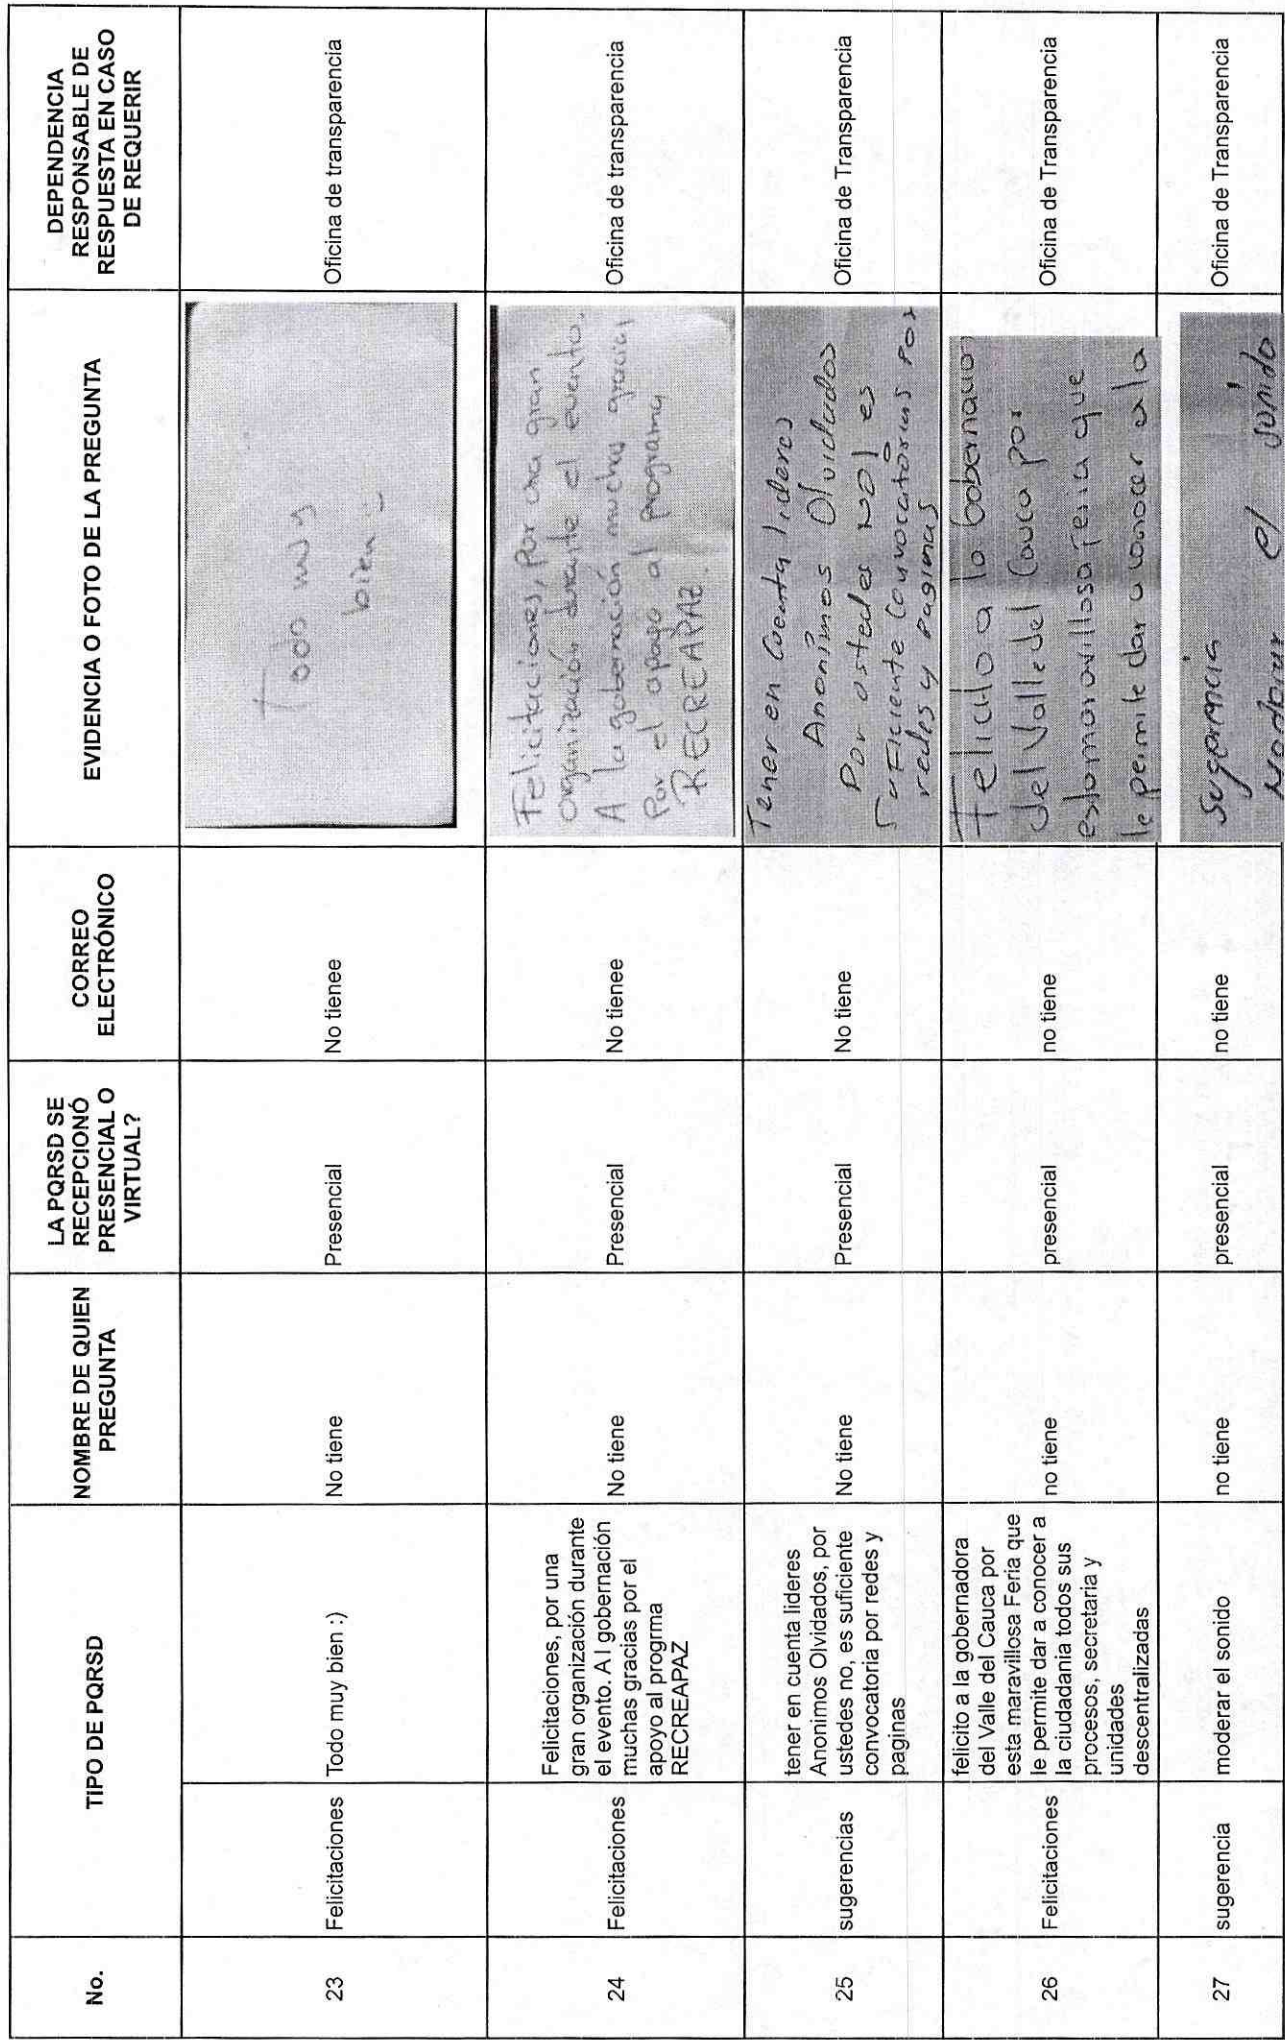 No.
TIPO DE PQRSD
NOMBRE DE QUIEN
PREGUNTA
LA PQRSD SE
RECEPCIONÓ
PRESENCIAL O
VIRTUAL?
CORREO
ELECTRÓNICO
EVIDENCIA O FOTO DE LA PREGUNTA
DEPENDENCIA
RESPONSABLE DE
RESPUESTA EN CASO
DE REQUERIR
23
Felicitaciones
Todo muy bien :)
No tiene
Presencial
No tienee
Todo muy
bien
Oficina de transparencia
24
Felicitaciones
Felicitaciones, por una
gran organizacion durante
el evento. A l gobernación
muchas gracias por el
apoyo al progrma
RECREAPAZ
No tiene
Presencial
No tienee
Felicitaciones, Por una gran
organización durante el evento.
A la gobernación muchas gracias
Por el apoyo al programa
RECREAPAZ!
Oficina de transparencia
25
sugerencias
tener en cuenta lideres
Anonimos Olvidados, por
ustedes no, es suficiente
convocatoria por redes y
paginas
No tiene
Presencial
No tiene
Tener en Cuenta lideres
Anonimos Olvidados
Por ustedes NO! es
suFiciente Convocatorias Por
redes y Paginas
Oficina de Transparencia
26
Felicitaciones
felicito a la gobernadora
del Valle del Cauca por
esta maravillosa Feria que
le permite dar a conocer a
la ciudadania todos sus
procesos, secretaria y
unidades
descentralizadas
no tiene
presencial
no tiene
Felicito a la Gobernado
del Valle del Cauca por
esta maravillosa Feria que
le permite dar a conocer a la
Oficina de Transparencia
27
sugerencia
moderar el sonido
no tiene
presencial
no tiene
Sugerencia
moderar el sonido
Oficina de Transparencia